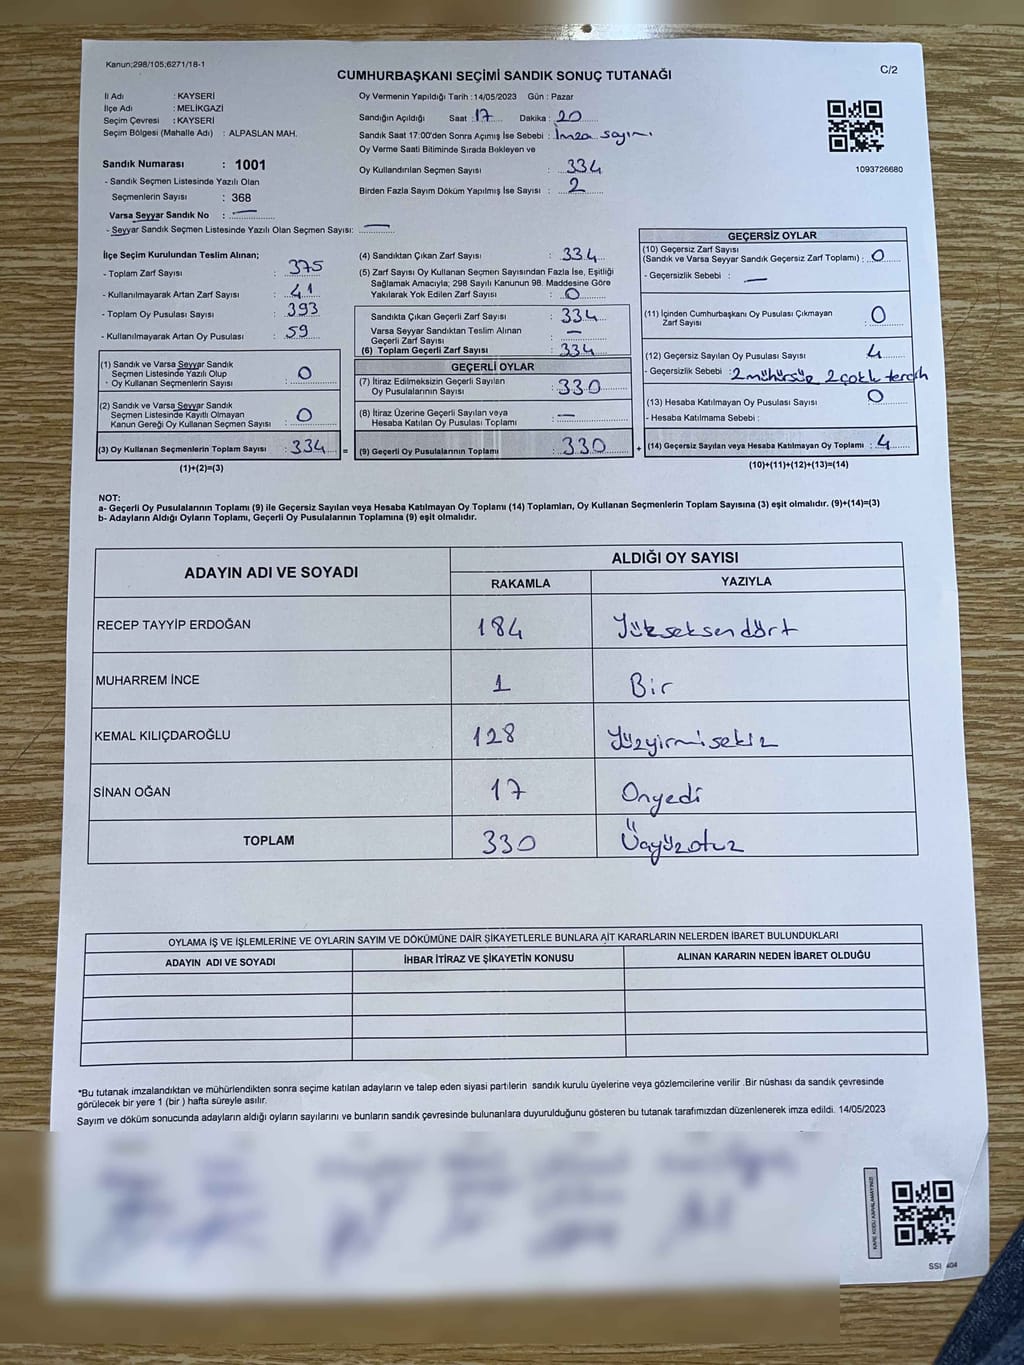 Kanun;298/105;6271/18-1
CUMHURBAŞKANI SEÇİMİ SANDIK SONUÇ TUTANAĞI
C/2
İl Adı : KAYSERİ
İlçe Adı : MELİKGAZİ
Seçim Çevresi : KAYSERİ
Seçim Bölgesi (Mahalle Adı) : ALPASLAN MAH.
Sandık Numarası : 1001
- Sandık Seçmen Listesinde Yazılı Olan
Seçmenlerin Sayısı : 368
Varsa Seyyar Sandık No : —
- Seyyar Sandık Seçmen Listesinde Yazılı Olan Seçmen Sayısı: —
Oy Vermenin Yapıldığı Tarih :14/05/2023 Gün : Pazar
Sandığın Açıldığı Saat : 17 Dakika : 20
Sandık Saat 17:00'den Sonra Açımış İse Sebebi : İmza sayımı
Oy Verme Saati Bitiminde Sırada Bekleyen ve
Oy Kullandırılan Seçmen Sayısı : 334
Birden Fazla Sayım Döküm Yapılmış İse Sayısı : 2
1093726680
İlçe Seçim Kurulundan Teslim Alınan;
- Toplam Zarf Sayısı : 375
- Kullanılmayarak Artan Zarf Sayısı : 41
- Toplam Oy Pusulası Sayısı : 393
- Kullanılmayarak Artan Oy Pusulası : 59
(1) Sandık ve Varsa Seyyar Sandık
Seçmen Listesinde Yazılı Olup
- Oy Kullanan Seçmenlerin Sayısı : 0
(2) Sandık ve Varsa Seyyar Sandık
Seçmen Listesinde Kayıtlı Olmayan
Kanun Gereği Oy Kullanan Seçmen Sayısı : 0
(3) Oy Kullanan Seçmenlerin Toplam Sayısı : 334 =
(1)+(2)=(3)
(4) Sandıktan Çıkan Zarf Sayısı : 334
(5) Zarf Sayısı Oy Kullanan Seçmen Sayısından Fazla İse, Eşitliği
Sağlamak Amacıyla; 298 Sayılı Kanunun 98. Maddesine Göre
Yakılarak Yok Edilen Zarf Sayısı : 0
Sandıkta Çıkan Geçerli Zarf Sayısı : 334
Varsa Seyyar Sandıktan Teslim Alınan
Geçerli Zarf Sayısı : —
(6) Toplam Geçerli Zarf Sayısı : 334
GEÇERLİ OYLAR
(7) İtiraz Edilmeksizin Geçerli Sayılan
Oy Pusulalarının Sayısı : 330
(8) İtiraz Üzerine Geçerli Sayılan veya
Hesaba Katılan Oy Pusulası Toplamı : —
(9) Geçerli Oy Pusulalarının Toplamı : 330 +
GEÇERSİZ OYLAR
(10) Geçersiz Zarf Sayısı
(Sandık ve Varsa Seyyar Sandık Geçersiz Zarf Toplamı) : 0
- Geçersizlik Sebebi : —
(11) İçinden Cumhurbaşkanı Oy Pusulası Çıkmayan
Zarf Sayısı : 0
(12) Geçersiz Sayılan Oy Pusulası Sayısı : 4
- Geçersizlik Sebebi : 2 mühürsüz 2 çoklu tercih
(13) Hesaba Katılmayan Oy Pusulası Sayısı : 0
- Hesaba Katılmama Sebebi :
(14) Geçersiz Sayılan veya Hesaba Katılmayan Oy Toplamı : 4
(10)+(11)+(12)+(13)=(14)
NOT:
a- Geçerli Oy Pusulalarının Toplamı (9) ile Geçersiz Sayılan veya Hesaba Katılmayan Oy Toplamı (14) Toplamları, Oy Kullanan Seçmenlerin Toplam Sayısına (3) eşit olmalıdır. (9)+(14)=(3)
b- Adayların Aldığı Oyların Toplamı, Geçerli Oy Pusulalarının Toplamına (9) eşit olmalıdır.
ADAYIN ADI VE SOYADI
ALDIĞI OY SAYISI
RAKAMLA YAZIYLA
RECEP TAYYİP ERDOĞAN 184 Yükseksendört
MUHARREM İNCE 1 Bir
KEMAL KILIÇDAROĞLU 128 Yüzyirmisekiz
SİNAN OĞAN 17 Onyedi
TOPLAM 330 Üçyüzotuz
OYLAMA İŞ VE İŞLEMLERİNE VE OYLARIN SAYIM VE DÖKÜMÜNE DAİR ŞİKAYETLERLE BUNLARA AİT KARARLARIN NELERDEN İBARET BULUNDUKLARI
ADAYIN ADI VE SOYADI İHBAR İTİRAZ VE ŞİKAYETİN KONUSU ALINAN KARARIN NEDEN İBARET OLDUĞU
*Bu tutanak imzalandıktan ve mühürlendikten sonra seçime katılan adayların ve talep eden siyasi partilerin sandık kurulu üyelerine veya gözlemcilerine verilir .Bir nüshası da sandık çevresinde
görülecek bir yere 1 (bir ) hafta süreyle asılır.
Sayım ve döküm sonucunda adayların aldığı oyların sayılarını ve bunların sandık çevresinde bulunanlara duyurulduğunu gösteren bu tutanak tarafımızdan düzenlenerek imza edildi. 14/05/2023
KARE KODU KARALAMAYINIZ!
SSI